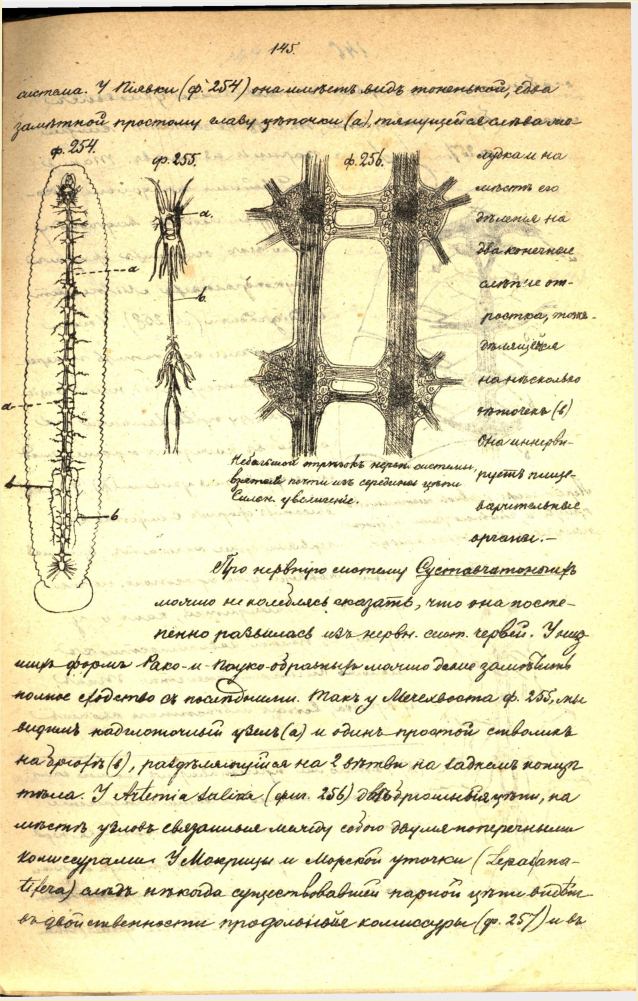 145.
система. У Піявки (ф. 254) она имѣетъ видъ тоненькой, едва
замѣтной простому глазу цѣпочки (а), тянущейся слѣва же-
ф. 254.
ф. 255.
ф. 256.
лудка и на
мѣстѣ его
дѣленія на
два конечные
слѣпые от-
ростка, тоже
дѣлящейся
на нѣсколько
вѣточекъ (в)
Она иннерви-
руетъ пище-
варительные
органы. —
a
a
b
b
a.
b.
Небольшой отрѣзокъ нервн. системы,
взятый почти изъ середины цѣпи
Сильн. увеличеніе.
Про нервную систему Суставчатоногихъ
можно не колеблясь сказать, что она посте-
пенно развилась изъ нервн. сист. червей. У низ-
шихъ формъ Рако-и-Пауко-образныхъ можно даже замѣтить
полное сходство съ послѣдними. Такъ у Мечехвоста ф. 255, мы
видимъ надглоточный узелъ (а) и одинъ простой стволикъ
на брюхѣ (в), раздѣляющійся на 2 вѣтви на заднемъ концѣ
тѣла. У Artemia salina (фиг. 256) двѣ брюшныя цѣпи, на
мѣстѣ узловъ связанныя между собою двумя поперечными
комиссурами. У Мокрицы и Морской уточки (Lepas ana-
tifera) слѣдъ нѣкогда существовавшей парной цѣпи видѣнъ
въ двойственности продольной комиссуры (ф. 257) и въ